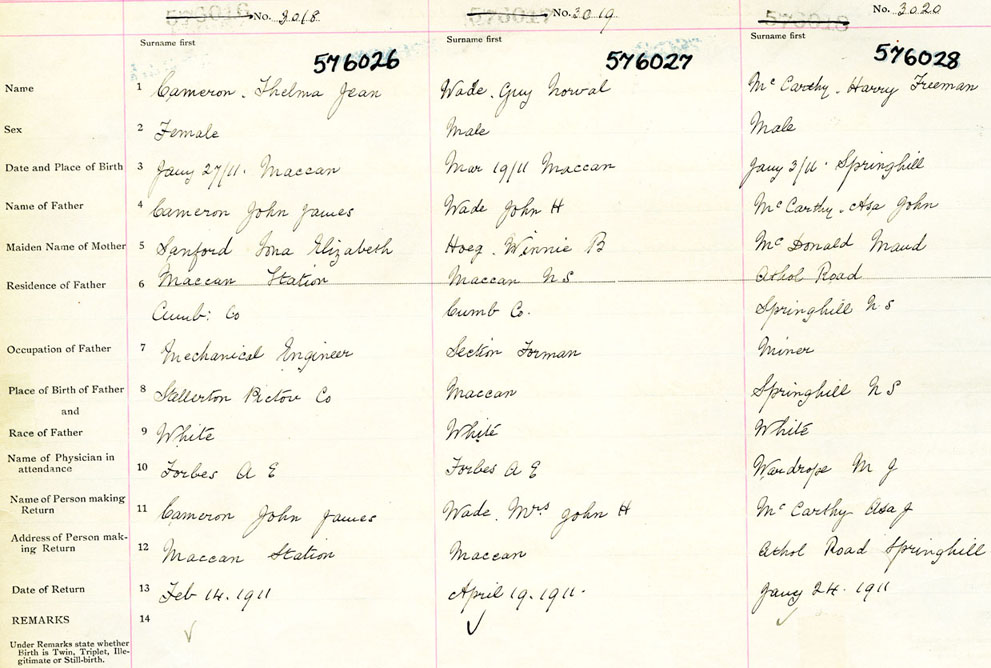 No. 3018 No. 3019 No. 3020
Surname first Surname first Surname first
576026 576027 576028
Name 1 Cameron, Thelma Jean Wade, Guy Norval Mc Carthy, Harry Freeman
Sex 2 Female Male Male
Date and Place of Birth 3 Jany 27/11. Maccan Mar 19/11 Maccan Jany 3/11. Springhill
Name of Father 4 Cameron John James Wade John H Mc Carthy, Asa John
Maiden Name of Mother 5 Sanford Iona Elizabeth Hoeg, Winnie B Mc Donald Maud
Residence of Father 6 Maccan Station Maccan N S Athol Road
Cumb: Co Cumb Co. Springhill N S
Occupation of Father 7 Mechanical Engineer Section Forman Miner
Place of Birth of Father 8 Stellerton Pictou Co Maccan Springhill N S
and
Race of Father 9 White White White
Name of Physician in
attendance 10 Forbes A E Forbes A E Wardrope M J
Name of Person making
Return 11 Cameron John James Wade, Mrs John H Mc Carthy Asa J
Address of Person mak-
ing Return 12 Maccan Station Maccan Athol Road Springhill
Date of Return 13 Feb 14. 1911 April 19. 1911. Jany 24. 1911
REMARKS 14
Under Remarks state whether
Birth is Twin, Triplet, Ille-
gitimate or Still-birth.